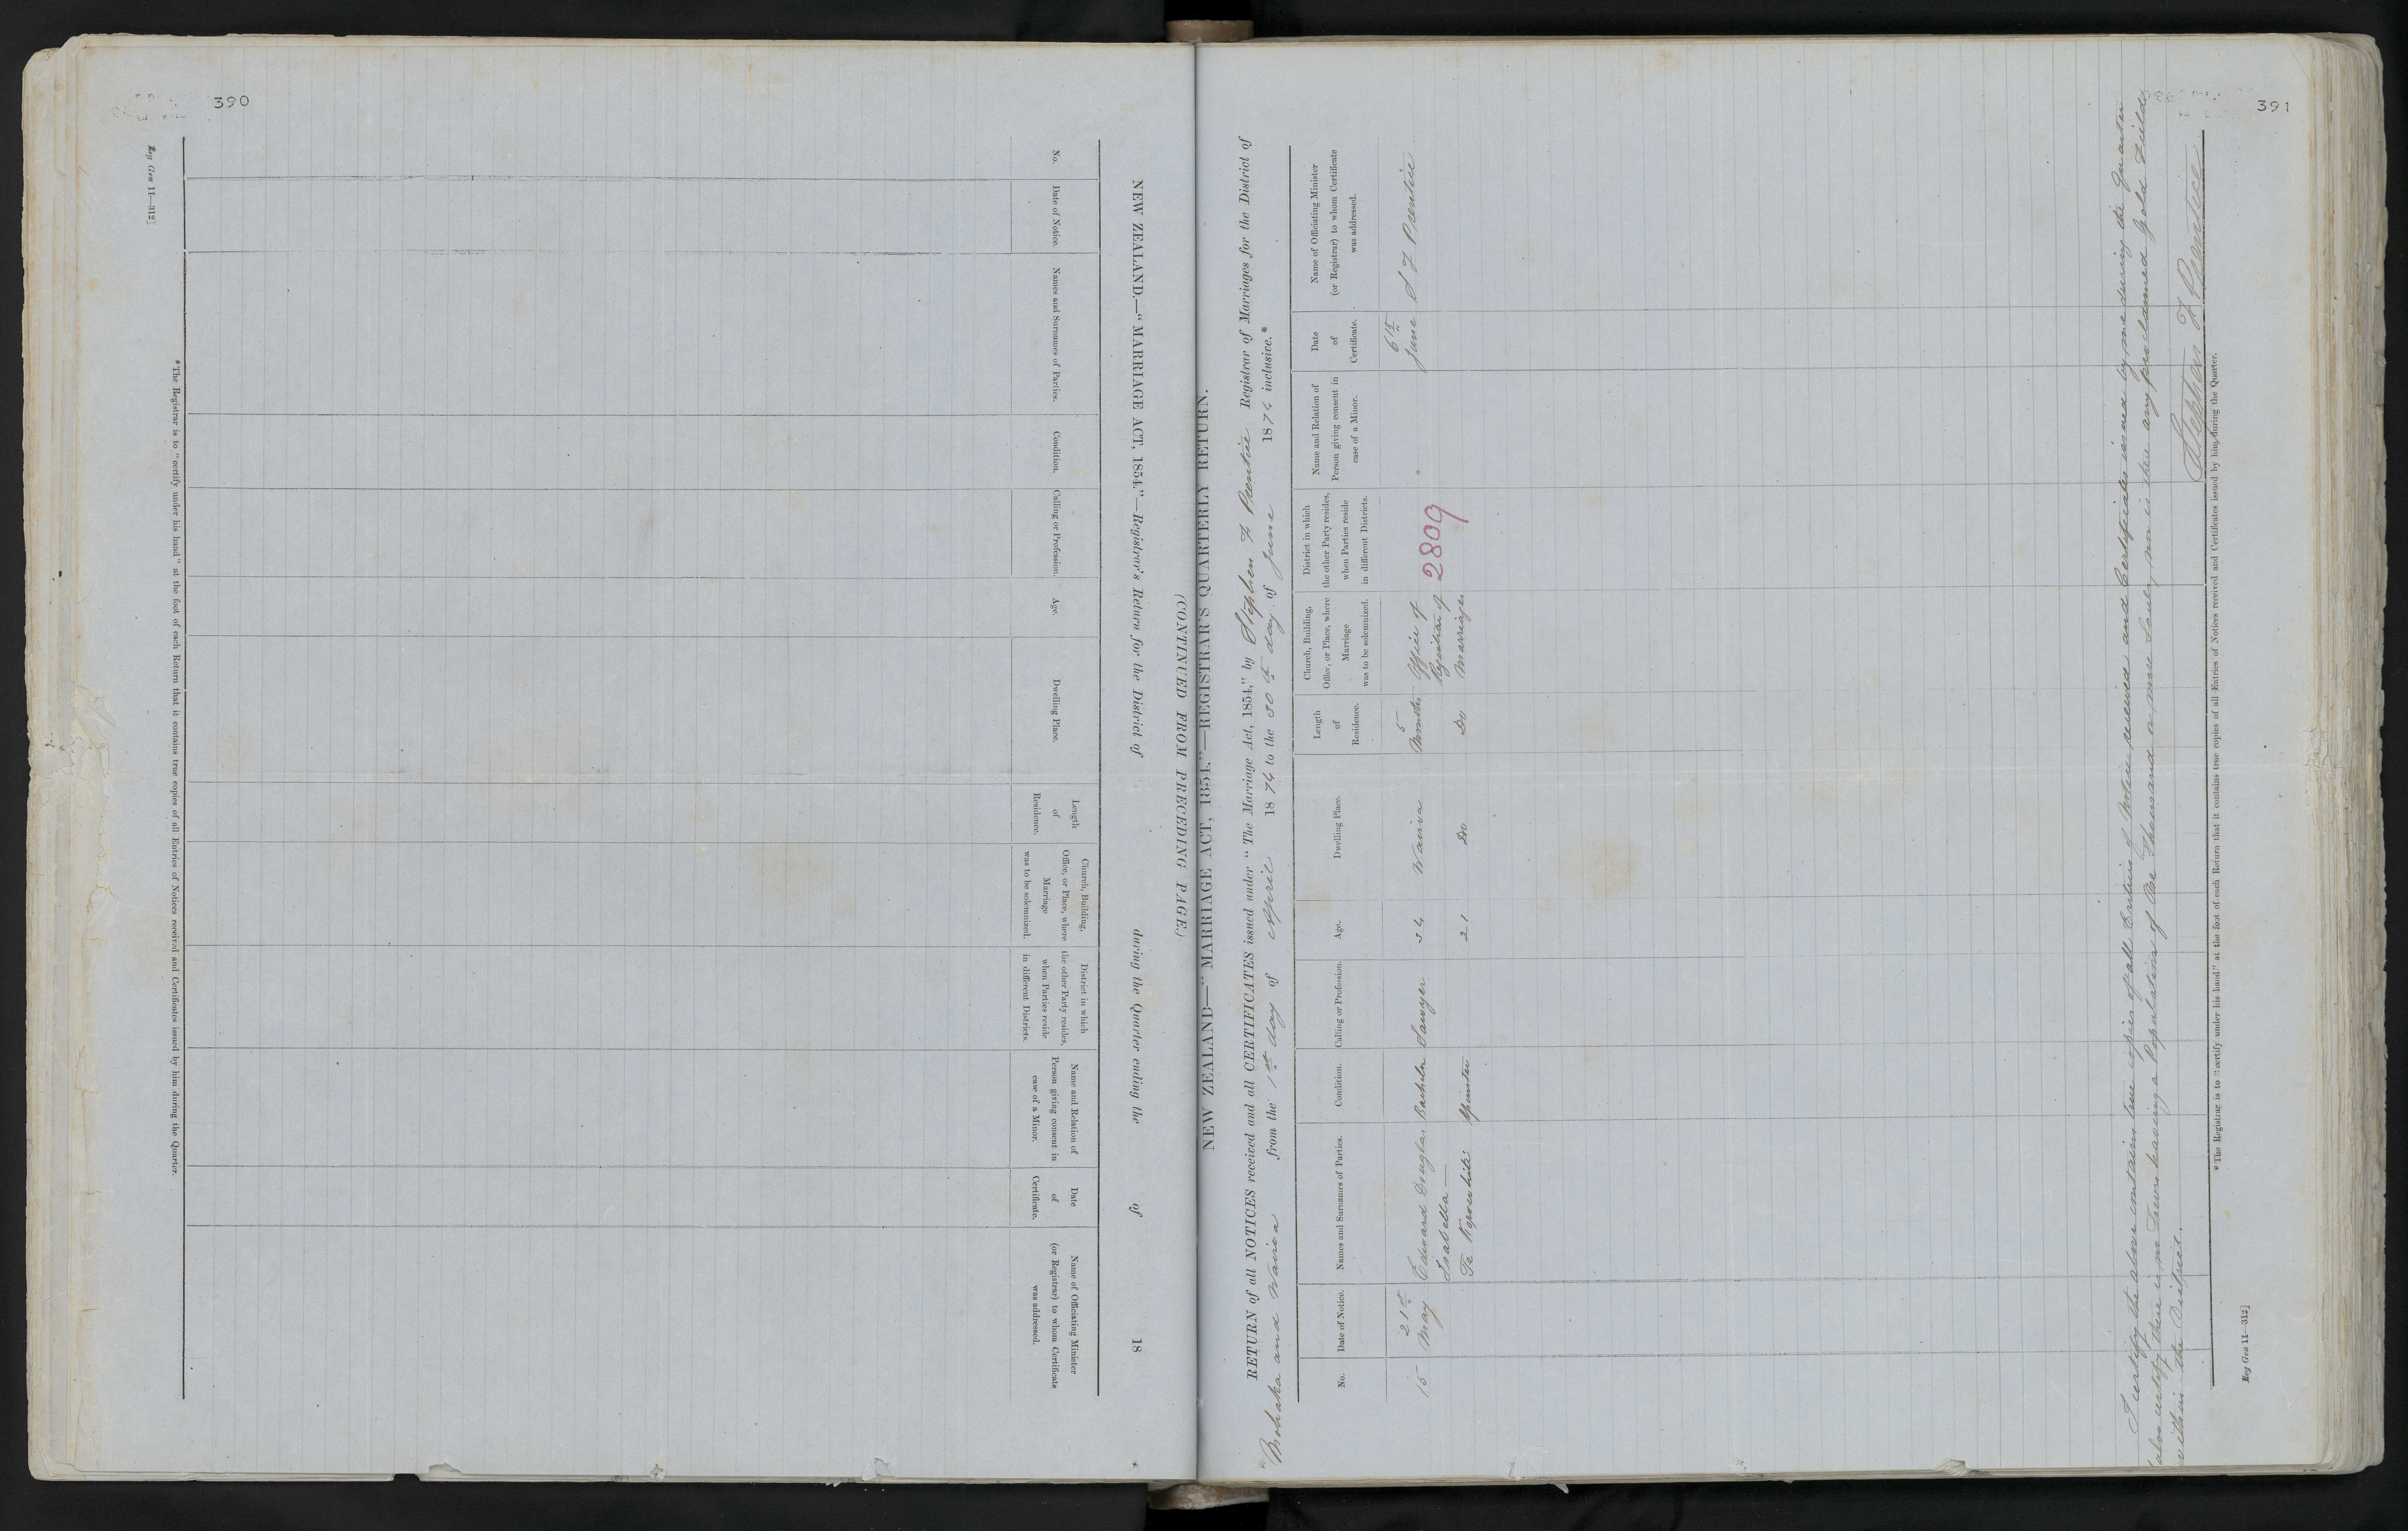 390
NEW ZEALAND.—"MARRIAGE ACT, 1854."—Registrar's Return for the District of during the Quarter ending the of 18
(CONTINUED FROM PRECEDING PAGE.)
No.
Date of Notice.
Names and Surnames of Parties.
Condition.
Calling or Profession.
Age.
Dwelling Place.
Length
of
Residence.
Church, Building,
Office, or Place, where
Marriage
was to be solemnized.
District in which
the other Party resides,
when Parties reside
in different Districts.
Name and Relation of
Person giving consent in
case of a Minor.
Date
of
Certificate.
Name of Officiating Minister
(or Registrar) to whom Certificate
was addressed.
*The Registrar is to "certify under his hand" at the foot of each Return that it contains true copies of all Entries of Notices received and Certificates issued by him during the Quarter.
Reg Gen 11—312]
391
NEW ZEALAND—"MARRIAGE ACT, 1854."—REGISTRAR'S QUARTERLY RETURN.
RETURN of all NOTICES received and all CERTIFICATES issued under "The Marriage Act, 1854," by Stephen F Prentice Registrar of Marriages for the District of
Mohaka and Wairoa from the 1st day of April 1874 to the 30th day of June 1874 inclusive.*
No.
Date of Notice.
Names and Surnames of Parties.
Condition.
Calling or Profession.
Age.
Dwelling Place.
Length
of
Residence.
Church, Building,
Office, or Place, where
Marriage
was to be solemnized.
District in which
the other Party resides,
when Parties reside
in different Districts.
Name and Relation of
Person giving consent in
case of a Minor.
Date
of
Certificate.
Name of Officiating Minister
(or Registrar) to whom Certificate
was addressed.
15
21st
May
Edward Douglas
Isabella —
Te
Bachelor
Spinster
Sawyer
34
21
Wairoa
Do
5
Months
Do
Office of
Registrar of
Marriages
2809
6th
June
S F Prentice
I certify the above contains true copies of all Entries of Notices received and Certificates issued by me during the Quarter
also certify there is no Town having a Population of One Thousand a male Souls, nor is there any proclaimed Gold Fields
within the District.
Stephen F Prentice
*The Registrar is to "certify under his hand" at the foot of each Return that it contains true copies of all Entries of Notices received and Certificates issued by him during the Quarter.
Reg Gen 11—312]